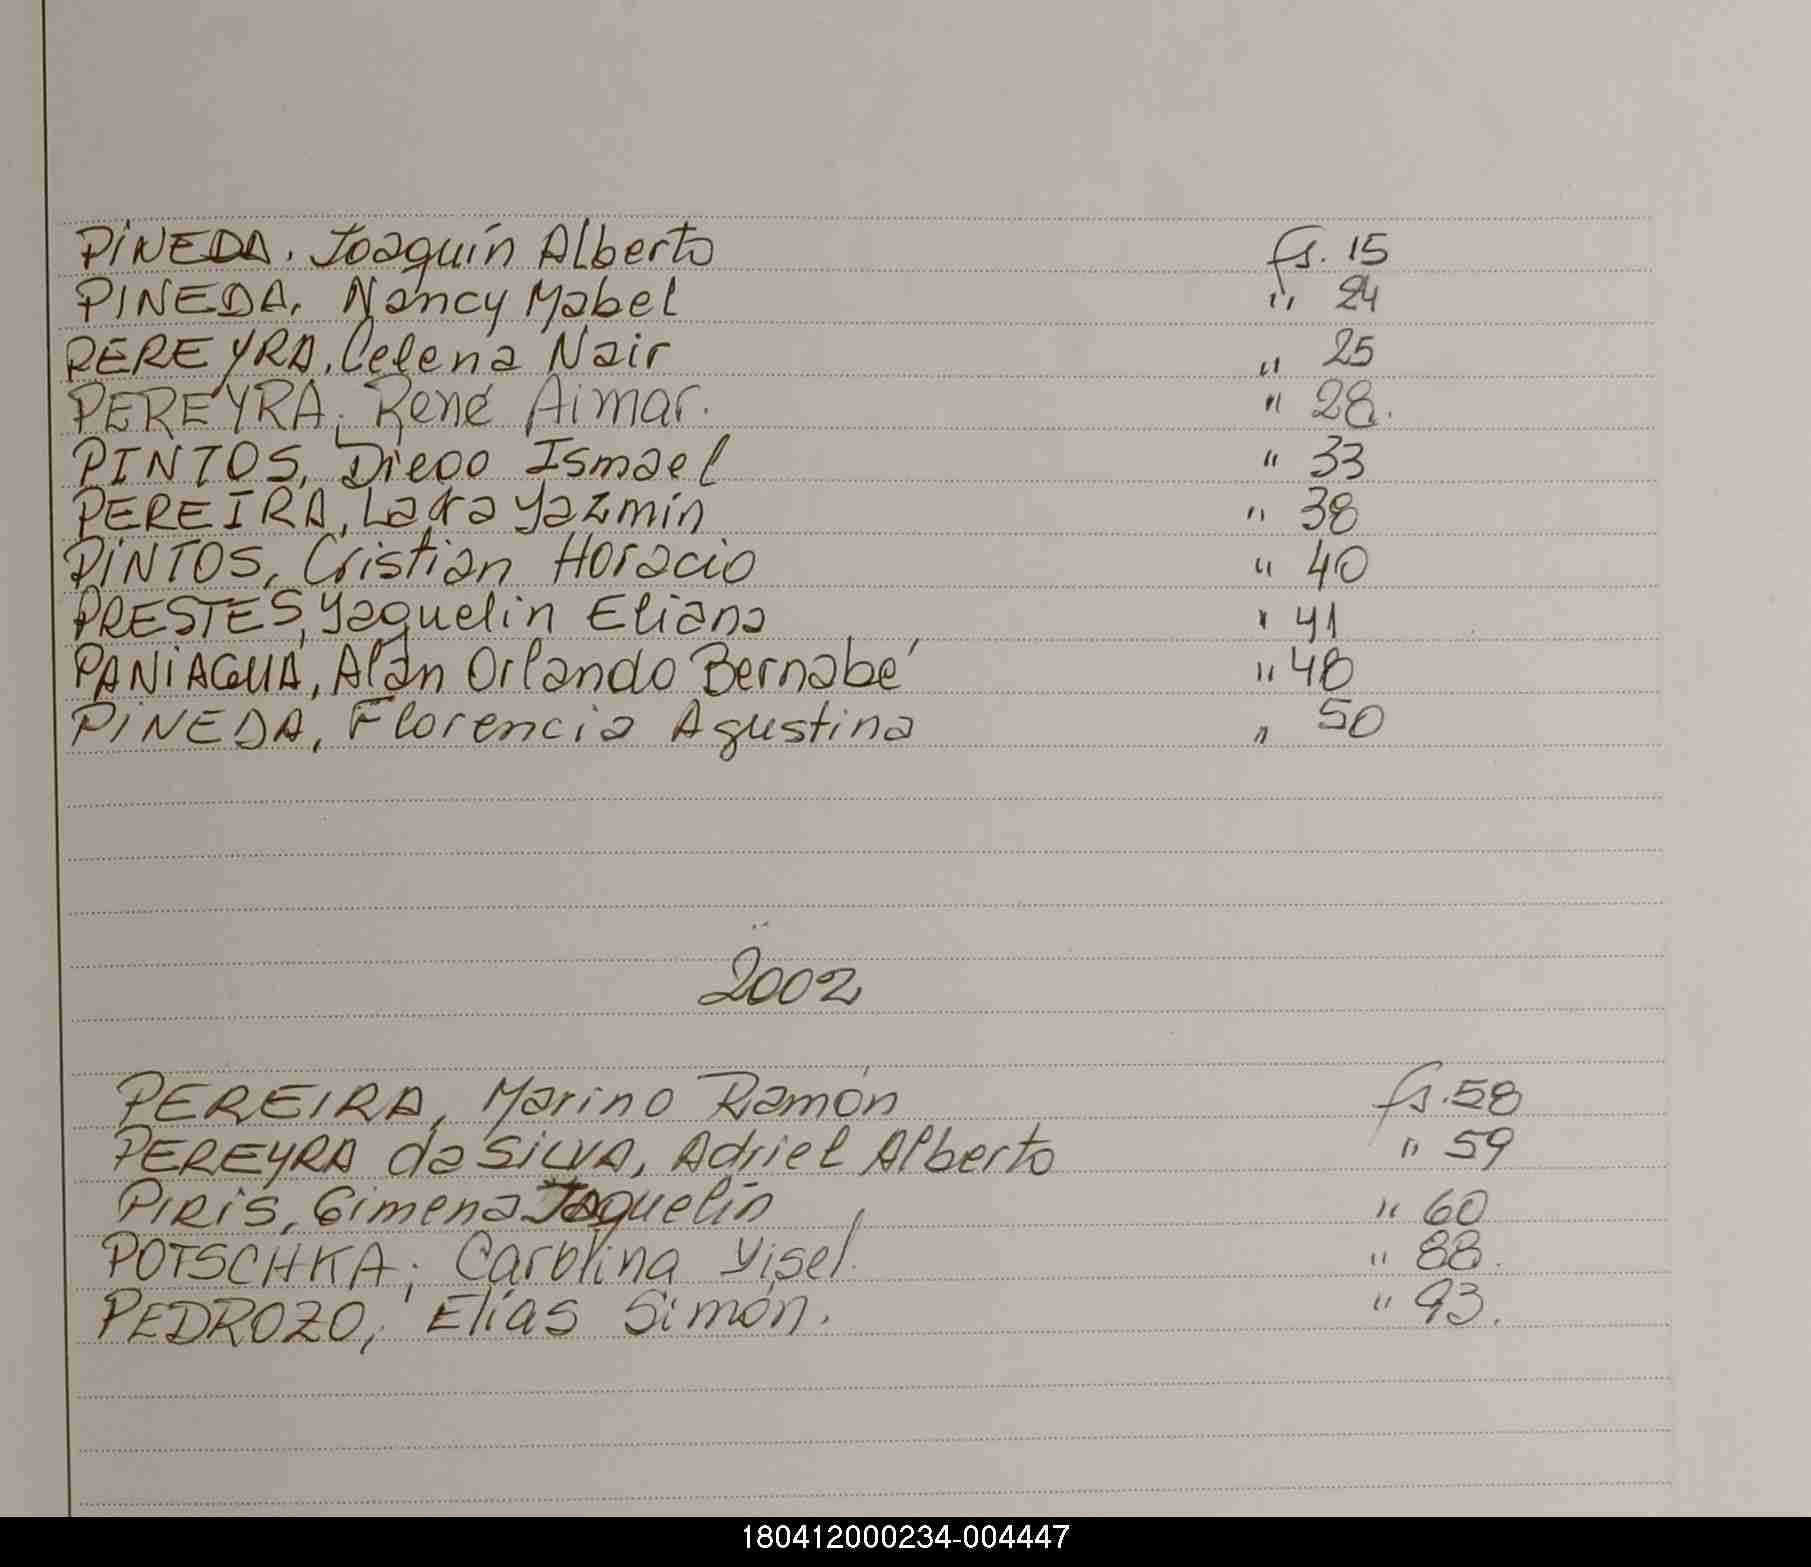 PINEDA, Joaquín Alberto fs. 15
PINEDA, Nancy Mabel " 24
PEREYRA, Celena Nair " 25
PEREYRA, René Aimar. " 28.
PINTOS, Diego Ismael " 33
PEREIRA, Lara Yazmín " 38
PINTOS, Cristian Horacio " 40
PRESTES, Yaquelin Eliana " 41
PANIAGUA, Alan Orlando Bernabé " 48
PINEDA, Florencia Agustina " 50
2002
PEREIRA, Marino Ramón fs. 58
PEREYRA da SILVA, Adriel Alberto " 59
PIRIS, Gimena Jaquelin " 60
POTSCHKA, Carolina Yisel. " 88.
PEDROZO, Elías Simón. " 93.
180412000234-004447